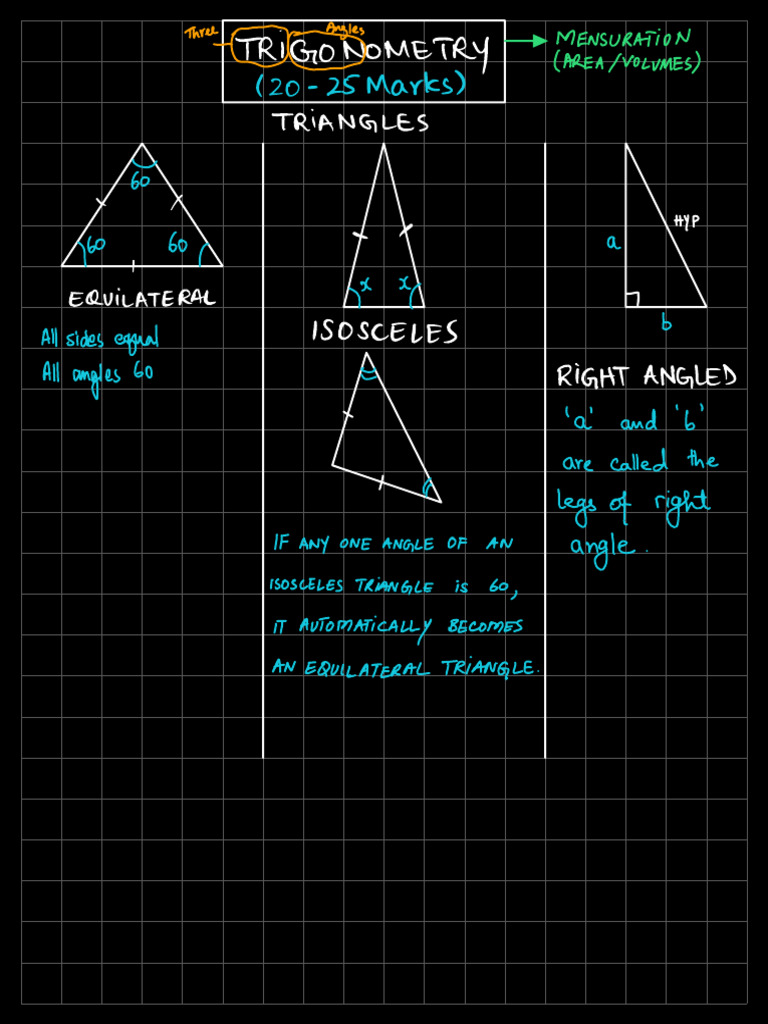 Three
Angles
TRIGONOMETRY
(20-25 Marks)
MENSURATION
(AREA/VOLUMES)
TRIANGLES
60
60
60
EQUILATERAL
All sides equal
All angles 60
x
x
ISOSCELES
IF ANY ONE ANGLE OF AN
ISOSCELES TRIANGLE IS 60,
IT AUTOMATICALLY BECOMES
AN EQUILATERAL TRIANGLE.
a
HYP
b
RIGHT ANGLED
'a' and 'b'
are called the
legs of right
angle.